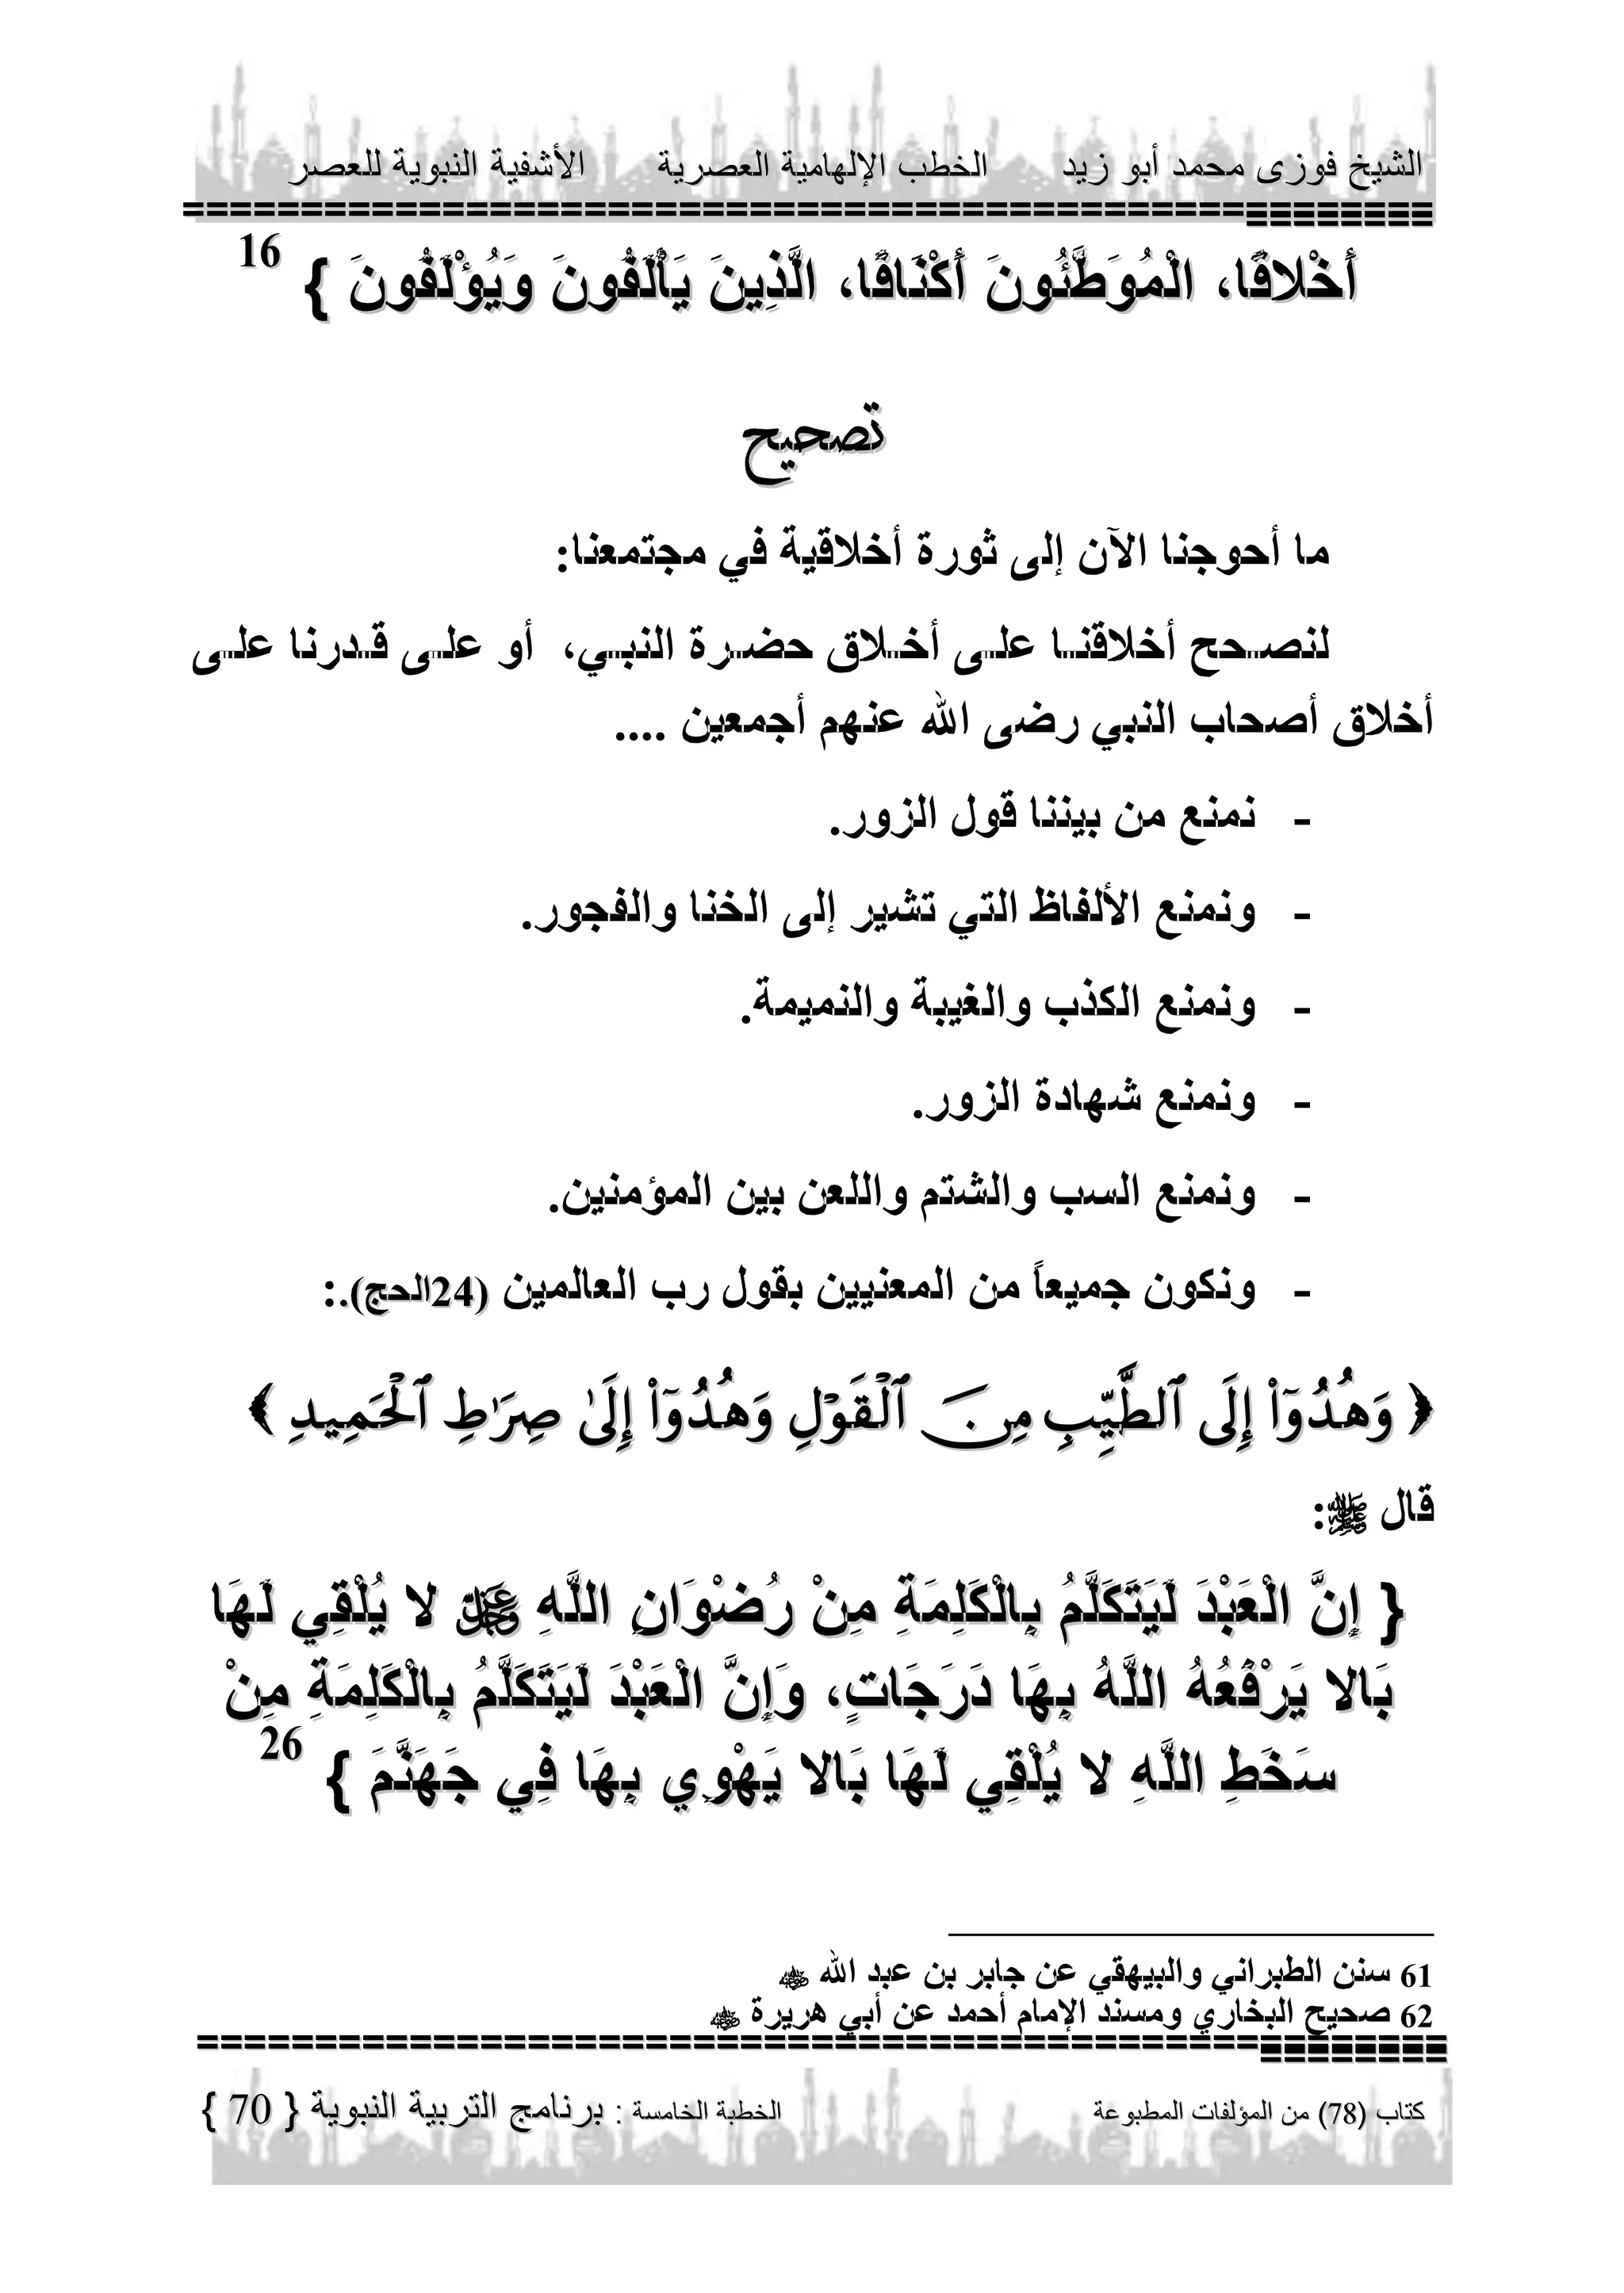 الشيخ فوزى محمد أبو زيد الخطب الإلهامية العصرية الأشفية النبوية للعصر
أَخْلاقًا، الْمُوَطَّئُونَ أَكْنَافًا، الَّذِينَ يَأْلَفُونَ وَيُؤْلَفُونَ } 16
تصحيح
ما أحوجنا الآن إلى ثورة أخلاقية في مجتمعنا:
لنصحح أخلاقنا على أخلاق حضرة النبي، أو على قدرنا على
أخلاق أصحاب النبي رضى الله عنهم أجمعين ....
- نمنع من بيننا قول الزور.
- ونمنع الألفاظ التي تشير إلى الخنا والفجور.
- ونمنع الكذب والغيبة والنميمة.
- ونمنع شهادة الزور.
- ونمنع السب والشتم واللعن بين المؤمنين.
- ونكون جميعاً من المعنيين بقول رب العالمين (24الحج).:
﴿ وَهُدُوٓا۟ إِلَى ٱلطَّيِّبِ مِنَ ٱلْقَوْلِ وَهُدُوٓا۟ إِلَىٰ صِرَٰطِ ٱلْحَمِيدِ ﴾
قال ﷺ:
{ إِنَّ الْعَبْدَ لَيَتَكَلَّمُ بِالْكَلِمَةِ مِنْ رُضْوَانِ اللَّهِ عز وجل لا يُلْقِي لَهَا
بَالا يَرْفَعُهُ اللَّهُ بِهَا دَرَجَاتٍ، وَإِنَّ الْعَبْدَ لَيَتَكَلَّمُ بِالْكَلِمَةِ مِنْ
سَخَطِ اللَّهِ لا يُلْقِي لَهَا بَالا يَهْوِي بِهَا فِي جَهَنَّمَ } 26
61 سنن الطبراني والبيهقي عن جابر بن عبد الله رضي الله عنه
62 صحيح البخاري ومسند الإمام أحمد عن أبي هريرة رضي الله عنه
كتاب (78) من المؤلفات المطبوعة الخطبة الخامسة : برنامج التربية النبوية { 70 }